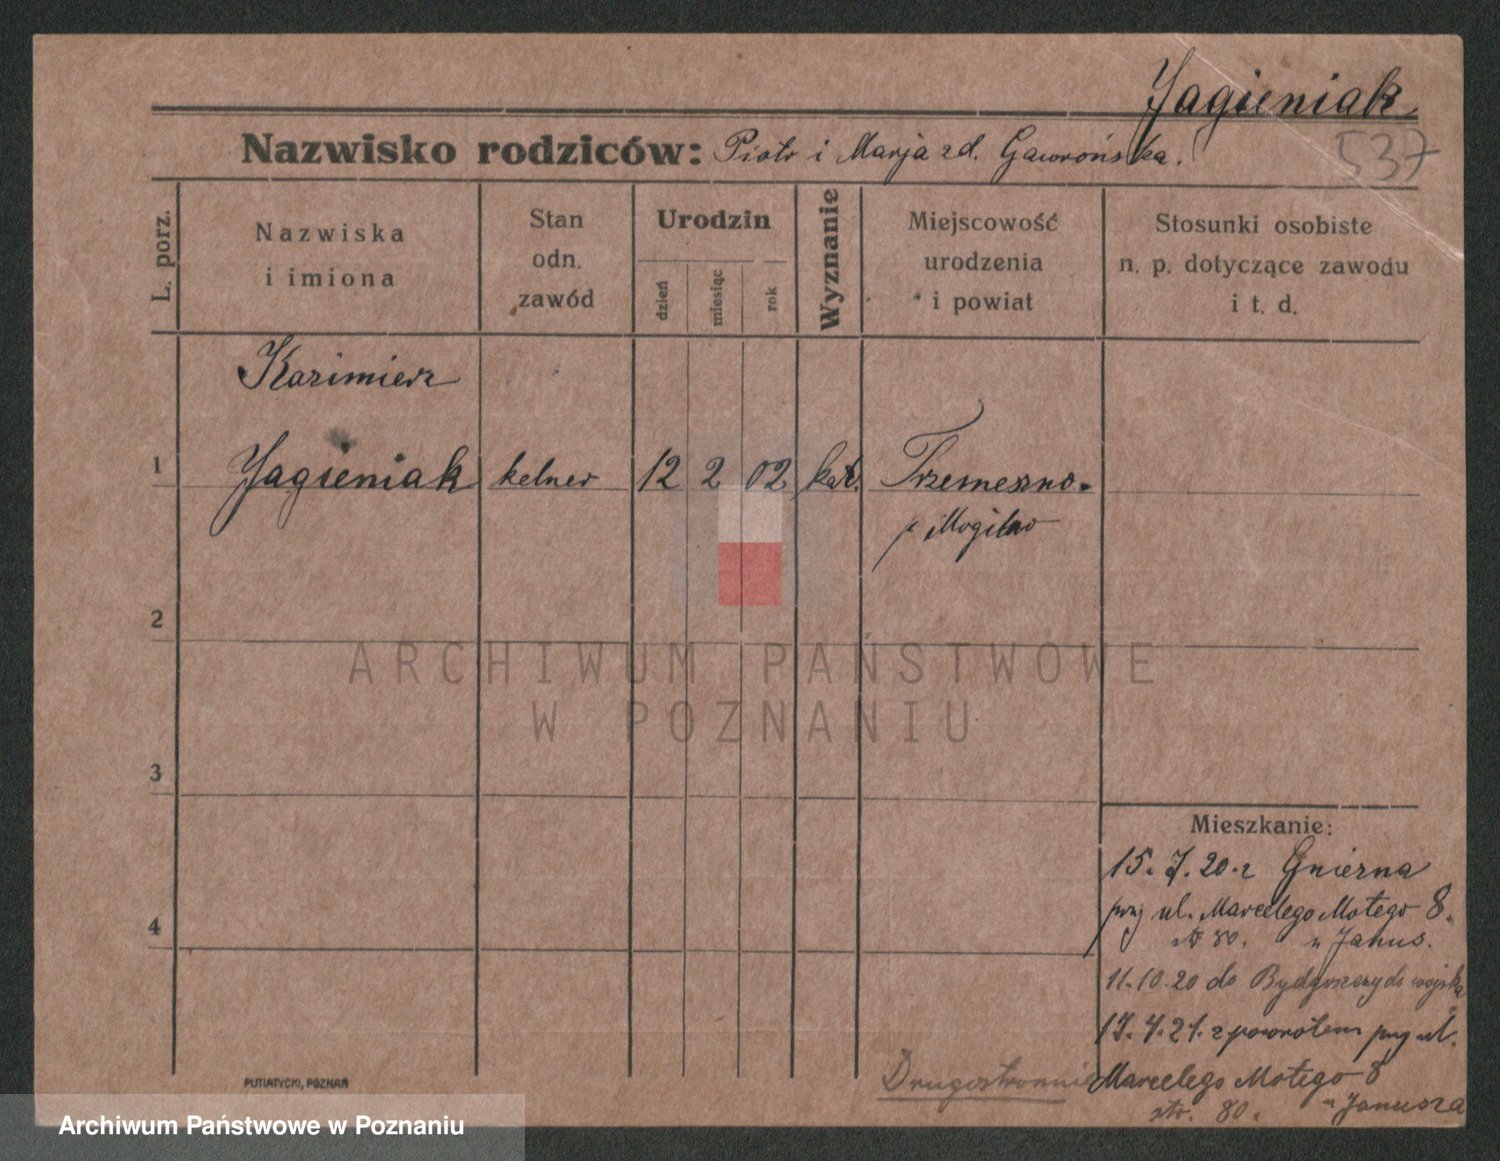 Jagieniak
Nazwisko rodziców: Piotr i Marja zd. Gawrońska.
537
L. porz.
Nazwiska
i imiona
Stan
odn.
zawód
Urodzin
dzień
miesiąc
rok
Wyznanie
Miejscowość
urodzenia
i powiat
Stosunki osobiste
n. p. dotyczące zawodu
i t. d.
Kazimierz
1 Jagieniak kelner 12 2 02 kat. Trzemeszno.
p Mogilno
2
ARCHIWUM PAŃSTWOWE
W POZNANIU
3
Mieszkanie:
15. 7. 20. z Gniezna
przy ul. Marcelego Motego 8.
str 80. u Janus.
4
11.10.20 do Bydgoszczy do wojska
17. 4. 21. z powrotem przy ul.
Drugostronnie Marcelego Motego 8
str. 80. u Janusza
PUTIATYCKI, POZNAŃ
Archiwum Państwowe w Poznaniu